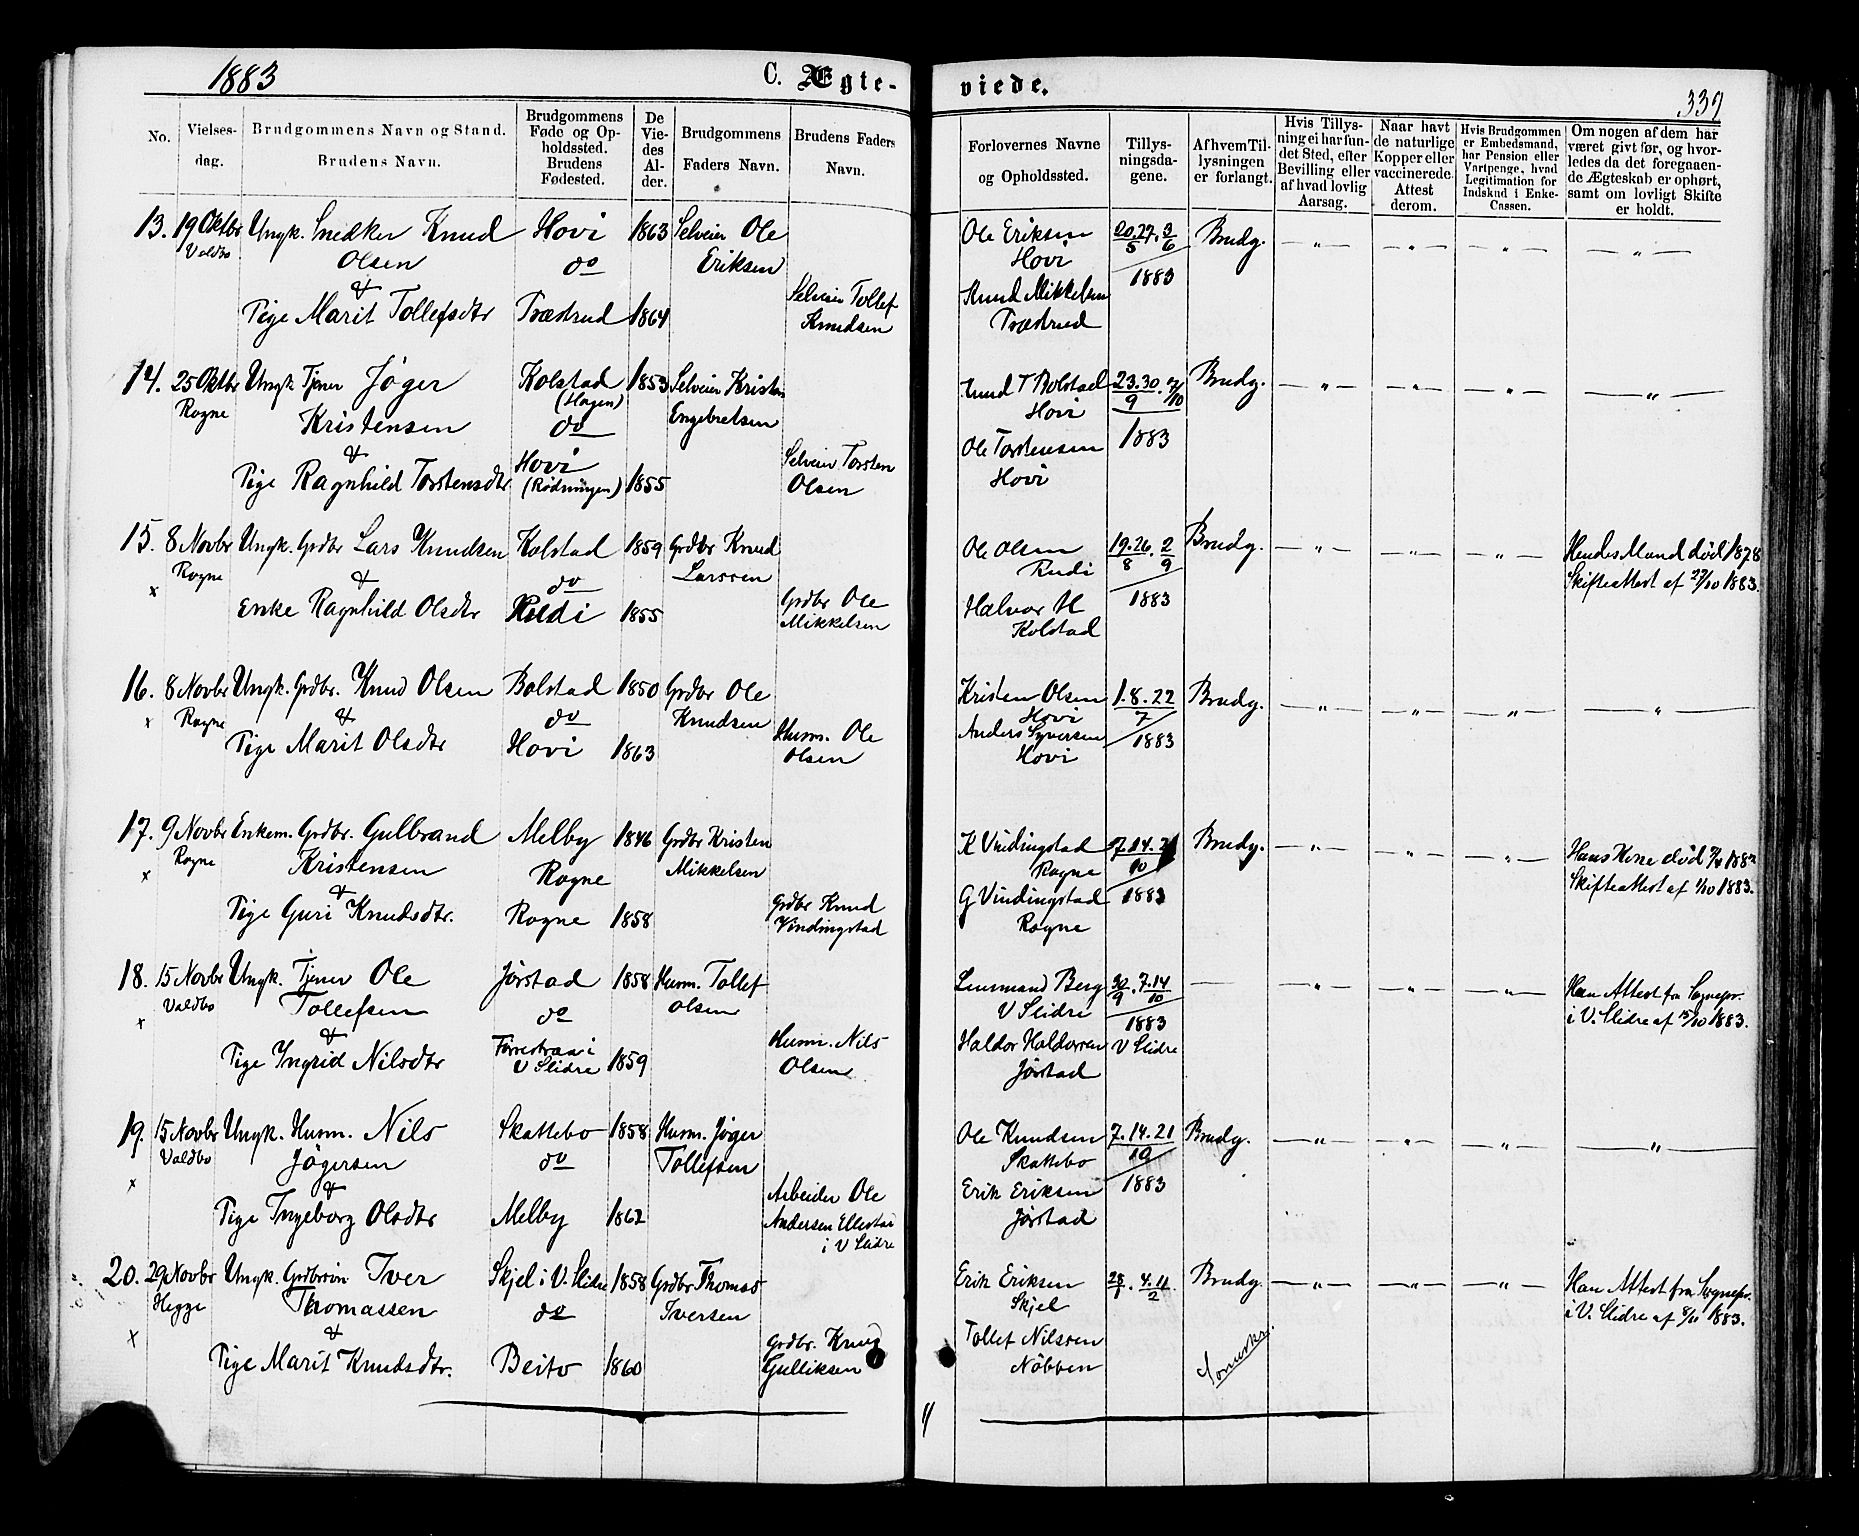 1883
C. Ægte-
viede.
339
No.
Vielses-
dag.
Brudgommens Navn og Stand.
Brudens Navn.
Brudgommens
Føde og Op-
holdssted.
Brudens
Fødested.
De
Vie-
des
Al-
der.
Brudgommens
Faders Navn.
Brudens Faders
Navn.
Forlovernes Navne
og Opholdssted.
Tillys-
ningsda-
gene.
Af hvem Til-
lysningen
er forlangt.
Hvis Tillys-
ning ei har fun-
det Sted, efter
Bevilling eller
af hvad lovlig
Aarsag.
Naar havt
de naturlige
Kopper eller
vaccinerede.
Attest
derom.
Hvis Brudgommen
er Embedsmand,
har Pension eller
Vartpenge, hvad
Legitimation for
Indskud i Enke-
Cassen.
Om nogen af dem har
været givt før, og hvor-
ledes da det foregaaen-
de Ægteskab er ophørt,
samt om lovligt Skifte
er holdt.
13. 19 Oktbr Ungk. Snedker Knud Hovi 1863 Selveier Ole
Valdbo Olsen do Eriksen
&
Pige Marit Tollefsdtr Trædrud 1864 Selveier Tollef
Knudsen
Ole Eriksen 20.27.3 Brudg. — " — — " — — " — — " —
Hovi 5 6
1883
Knud Mikkelsen
Trædrud
14. 25 Oktbr Ungk Tjener Jøger Kolstad 1853 Selveier Kristen
Rogne Kristensen (Hagen) Engebretsen
do
&
Pige Ragnhild Torstensdtr Hovi 1855 Selveier Torsten
(Rødningen) Olsen
Knud T Bolstad 23.30.7 Brudg. — " — — " — — " — — " —
Hovi 9 10
Ole Torstensen 1883
Hovi
15. 8 Novbr Ungk. Grdbr Lars Knudsen Kolstad 1859 Grdbr Knud
Rogne & do Larssen
x Enke Ragnhild Olsdtr Rudi 1855 Grdbr Ole
Mikkelsen
Ole Olsen 19.26.2 Brudg. — " — — " — — " — Hendes Mand død 1878
Rudi 8 9 Skifteattest af 27/10 1883.
Halvor H 1883
Kolstad
16. 8 Novbr Ungk. Grdbr. Knud Olsen Bolstad 1850 Grdbr Ole
x Rogne & do Knudsen
Pige Marit Olsdtr Hovi 1863 Husm. Ole
Olsen
Kristen Olsen 1.8.22 Brudg. — " — — " — — " — — " —
Hovi 7
Anders Syversen 1883
Hovi
17. 9 Novbr Enkem. Grdbr. Gulbrand Melby 1846 Grdbr Kristen
Rogne Kristensen Rogne Mikkelsen
x &
Pige Guri Knudsdtr. Rogne 1858 Grdbr Knud
Vindingstad
K Vindingstad 7.14.21 Brudg. — " — — " — — " — Hans Kone død
Rogne 10 Skifteattest af 1/10 1883.
G Vindingstad 1883
Rogne
18. 15 Novbr Ungk. Tjener Ole Jørstad 1858 Husm. Tollef
Valdbo Tollefsen do Olsen
x &
Pige Ingrid Nilsdtr V Slidre 1859 Husm. Nils
Olsen
Lensmand Berg 30.7.14 — — " — — " — — " — Han Attest fra Sognepr.
V Slidre 9 10 i V. Slidre af 15/10 1883.
1883
Haldor Haldorsen V Slidre
Jørstad
19. 15 Novbr Ungk. Husm. Nils Skattebo 1858 Husm. Jøger
Valdbo Jøgersen do Tollefsen
x &
Pige Ingeborg Olsdtr Melby 1862 Arbeider Ole
Andersen Ellestad
i V Slidre
Ole Knudsen 7.14.21 Brudg. — " — — " — — " — — " —
Skattebo 10
Erik Eriksen 1883
Jørstad
20. 29 Novbr Ungk. Grdbrsøn Iver Skjel i V. Slidre 1858 Grdbr Thomas
Hegge Thomassen do Iversen
x &
Pige Marit Knudsdtr. Beito 1860 Grdbr. Knud
Gulliksen
Erik Eriksen 28.4.11 Brudg. — " — — " — — " — Han Attest fra Sognepr.
Skjel 2 i V. Slidre af 8/10 1883.
Tollef Nilssen
Nøbben